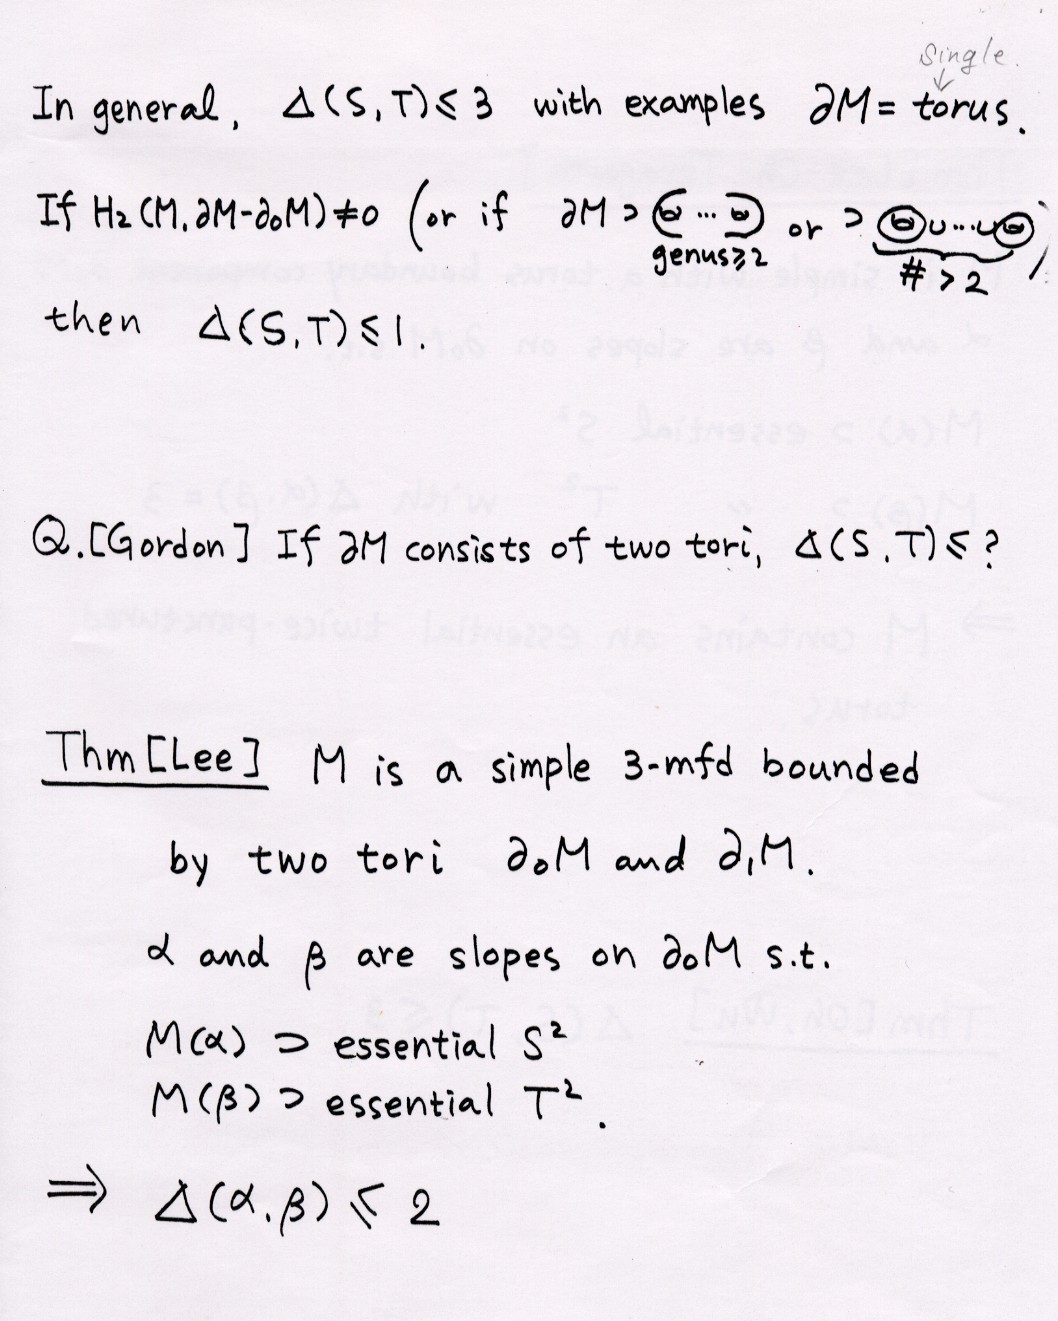 single.
In general, Δ(S,T)≤3 with examples ∂M = torus.
If H₂(M,∂M-∂₀M)≠0 (or if ∂M ⊃ ... or ⊃ ∪...∪ )
genus≥2 # > 2
then Δ(S,T)≤1.
Q.[Gordon] If ∂M consists of two tori, Δ(S,T)≤?
Thm [Lee] M is a simple 3-mfd bounded
by two tori ∂₀M and ∂₁M.
α and β are slopes on ∂₀M s.t.
M(α) ⊃ essential S²
M(β) ⊃ essential T².
⇒ Δ(α,β) ≤ 2